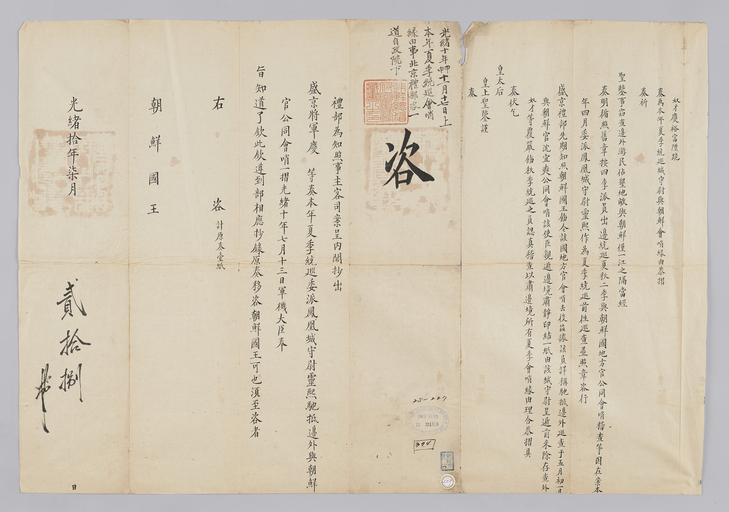 奴才慶裕宮陞跪
奏為本年夏季統巡城守尉與朝鮮會哨緣由恭摺
奏祈
聖鑒事竊查邊外游民佔墾地畝與朝鮮僅一江之隔當經
奏明循照舊章按四季派員出邊統巡夏秋二季與朝鮮國地方官公同會哨稽查等因在案本
年四月委派鳳凰城守尉靈熙作為夏季統巡前往巡查並照章咨行
盛京禮部先期知照朝鮮國王飭令該國地方官會哨去後茲據該員詳稱馳抵邊外巡查于五月初一日
與朝鮮官沈宜奭公同會哨該使臣親遞邊境肅靜印結一紙由該城守尉呈遞前來除存查外
奴才等覆嚴飭秋季統巡之員認真稽查以肅邊境所有夏季會哨緣由理合恭摺具
奏伏乞
皇太后
皇上聖鑒謹
奏
光緒十年甲申十二月十日上
本年夏季統巡會哨
緣由事北京禮部咨一
道自政院下
咨
禮部為知照事主客司案呈內閣抄出
盛京將軍慶 等奏本年夏季統巡委派鳳凰城守尉靈熙馳抵邊外與朝鮮
官公同會哨一摺光緒十年七月十三日軍機大臣奉
旨知道了欽此欽遵到部相應抄錄原奏移咨朝鮮國王可也須至咨者
右 咨 計原奏壹紙
朝鮮國王
光緒拾年柒月
日
貳拾捌
25-227